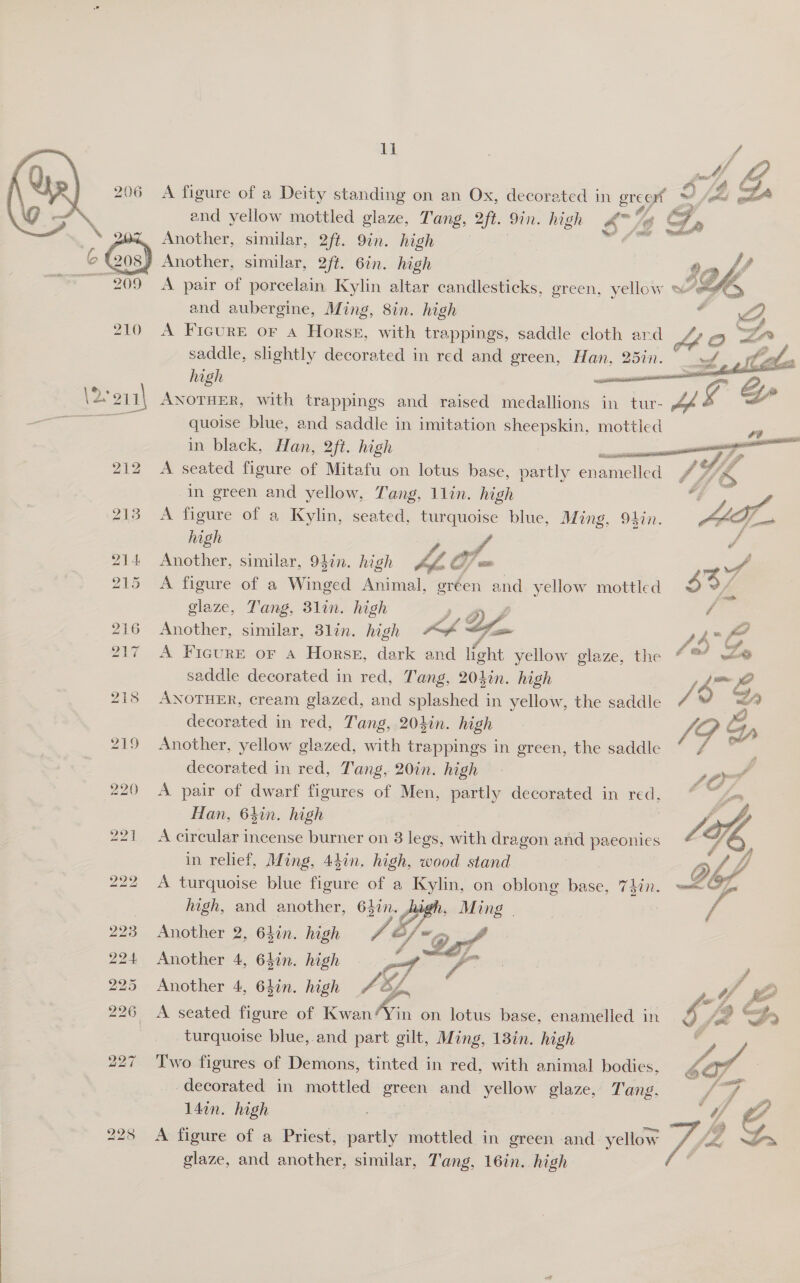 11
206 A figure of a Deity standing on an Ox, decorated in green
and yellow mottled glaze, Tang, 2ft. 9in. high
207 Another, similar, 2ft. 9in. high
208 Another, similar, 2ft. 6in. high
209 A pair of porcelain Kylin altar candlesticks, green, yellow
and aubergine, Ming, 8in. high
210 A FIGURE OF A HORSE, with trappings, saddle cloth and
saddle, slightly decorated in red and green, Han, 25in.
high
211 ANOTHER, with trappings and raised medallions in tur-
quoise blue, and saddle in imitation sheepskin, mottled
in black, Han, 2ft. high
212 A seated figure of Mitafu on lotus base, partly enamelled
in green and yellow, Tang, 11in. high
213 A figure of a Kylin, seated, turquoise blue, Ming, 9½in.
high
214 Another, similar, 9½in. high
215 A figure of a Winged Animal, green and yellow mottled
glaze, Tang, 31in. high
216 Another, similar, 31in. high
217 A FIGURE OF A HORSE, dark and light yellow glaze, the
saddle decorated in red, Tang, 20½in. high
218 ANOTHER, cream glazed, and splashed in yellow, the saddle
decorated in red, Tang, 20½in. high
219 Another, yellow glazed, with trappings in green, the saddle
decorated in red, Tang, 20in. high
220 A pair of dwarf figures of Men, partly decorated in red,
Han, 6½in. high
221 A circular incense burner on 3 legs, with dragon and paeonies
in relief, Ming, 4½in. high, wood stand
222 A turquoise blue figure of a Kylin, on oblong base, 7½in.
high, and another, 6½in. high, Ming
223 Another 2, 6½in. high
224 Another 4, 6½in. high
225 Another 4, 6½in. high
226 A seated figure of Kwan Yin on lotus base, enamelled in
turquoise blue, and part gilt, Ming, 13in. high
227 Two figures of Demons, tinted in red, with animal bodies,
decorated in mottled green and yellow glaze, Tang,
14in. high
228 A figure of a Priest, partly mottled in green and yellow
glaze, and another, similar, Tang, 16in. high